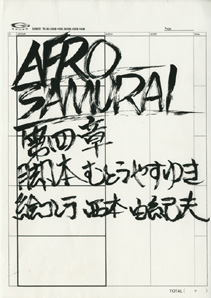 AFRO
SAMURAI
第四章
脚本 むとうやすゆき
絵コンテ 西本由紀夫
TOTAL